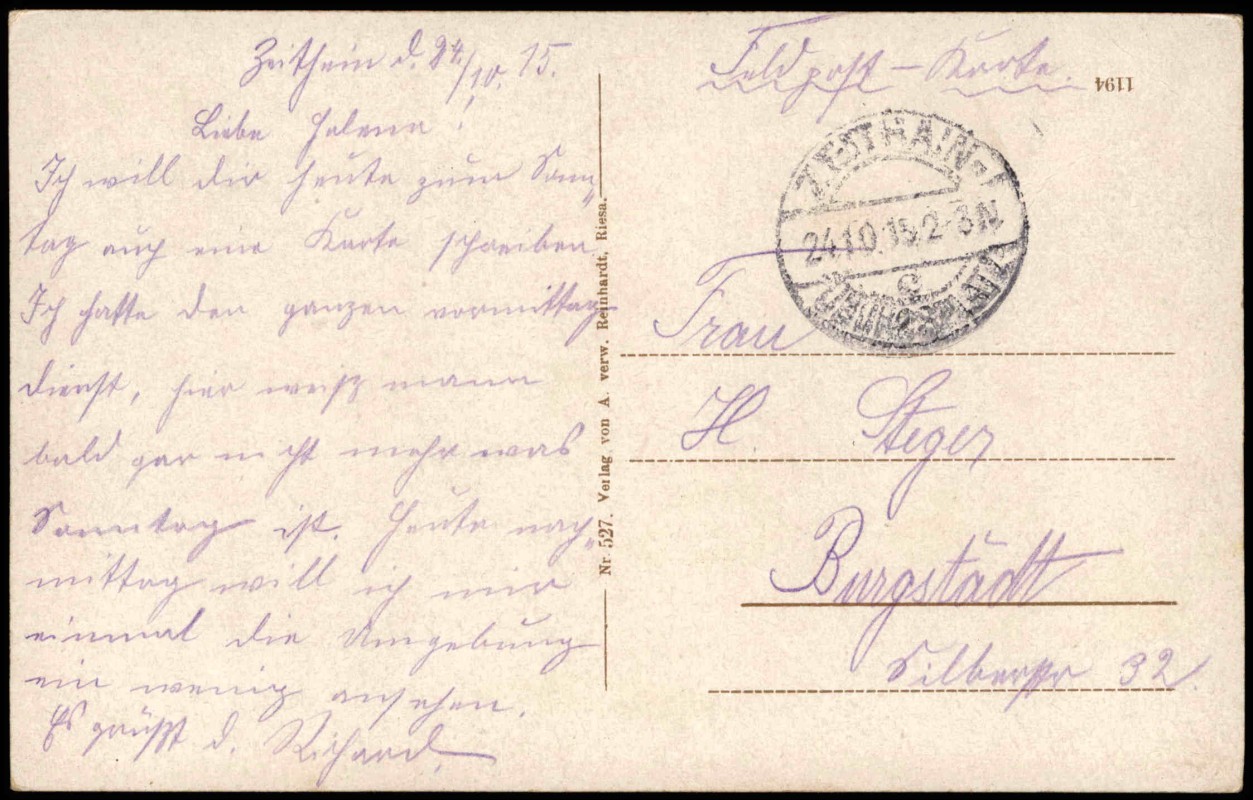 Zeithein d. 24./10. 15.
Liebe Helene!
Ich will dir heute zum Sonn„
tag auch eine Karte schreiben.
Ich hatte den ganzen vormittag
dienst, hier weiß mann
bald gar nicht mehr was
Sonntag ist. Heute nach„
mittag will ich mir
einmal die Umgebung
ein wenig ansehen.
Es grüßt d. Richard.
Nr. 527. Verlag von A. verw. Reinhardt, Riesa.
Feldpost – Karte.
1194
ZEITHAIN
24.10.15.2-3N
c
TRUPPEN-ÜB.PL.
Frau
H. Steger
Burgstädt
Silberstr 32.